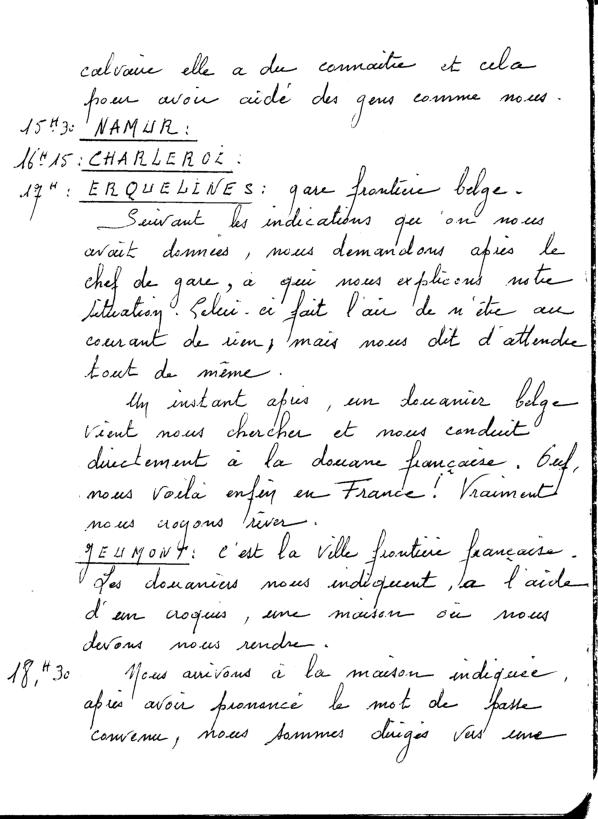 calvaire elle a du connaitre et cela
pour avoir aidé des gens comme nous.
15H30 NAMUR:
16H15: CHARLEROI:
17H: ERQUELINES: gare frontière belge.
Suivant les indications qu'on nous
avait données, nous demandons après le
chef de gare, à qui nous expliquons notre
situation. Celui-ci fait l'air de n'être au
courant de rien, mais nous dit d'attendre
tout de même.
Un instant après, un douanier belge
vient nous chercher et nous conduit
directement à la douane française. Ouf,
nous voilà enfin en France! Vraiment
nous croyons rêver.
JEUMONT: C'est la ville frontière française.
Les douaniers nous indiquent, a l'aide
d'un croquis, une maison où nous
devons nous rendre.
18,H30 Nous arrivons à la maison indiquée,
après avoir prononcé le mot de passe
convenu, nous sommes dirigés vers une